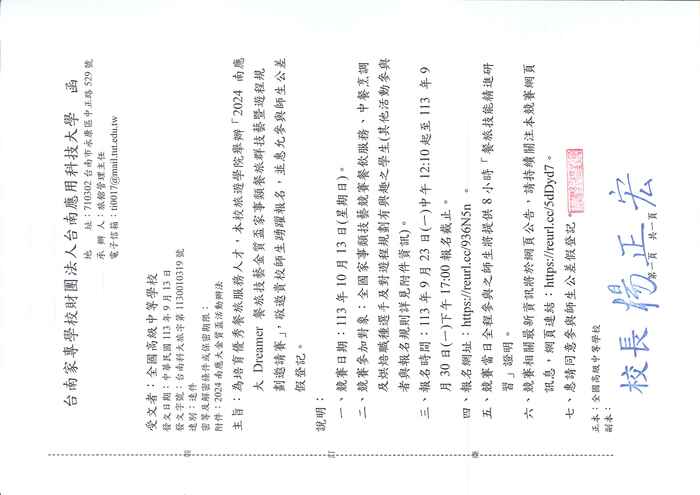 台南家專學校財團法人台南應用科技大學 函
地 址：710302 台南市永康區中正路 529 號
承 辦 人：旅館管理主任
電子信箱：ti0017@mail.tut.edu.tw
受文者：全國高級中等學校
發文日期：中華民國 113 年 9 月 13 日
發文字號：台南科大旅字第 1130010319 號
速別：速件
密等及解密條件或保密期限：
附件：2024 南應大金質盃活動辦法
主旨：為培育優秀餐旅服務人才，本校旅遊學院舉辦「2024 南應
大 Dreamer 餐旅技藝金質盃家事類餐旅群技藝暨遊程規
劃邀請賽」，敬邀貴校師生踴躍報名，並惠允參與師生公差
假登記。
說明：
一、競賽日期：113 年 10 月 13 日(星期日)。
二、競賽參加對象：全國家事類技藝競賽餐飲服務、中餐烹調
及烘焙職種選手及對遊程規劃有興趣之學生(其他活動參與
者與報名規則詳見附件資訊)。
三、報名時間：113 年 9 月 23 日(一)中午 12:10 起至 113 年 9
月 30 日(一)下午 17:00 報名截止。
四、報名網址：https://reurl.cc/936N5n 。
五、競賽當日全程參與之師生將提供 8 小時「餐旅技能精進研
習」證明。
六、競賽相關最新資訊將於網頁公告，請持續關注本競賽網頁
訊息，網頁連結：https://reurl.cc/5dDyd7。
七、惠請同意參與師生公差假登記。
正本：全國高級中等學校
副本：
校長 楊正宏
第一頁 共一頁
裝
訂
線